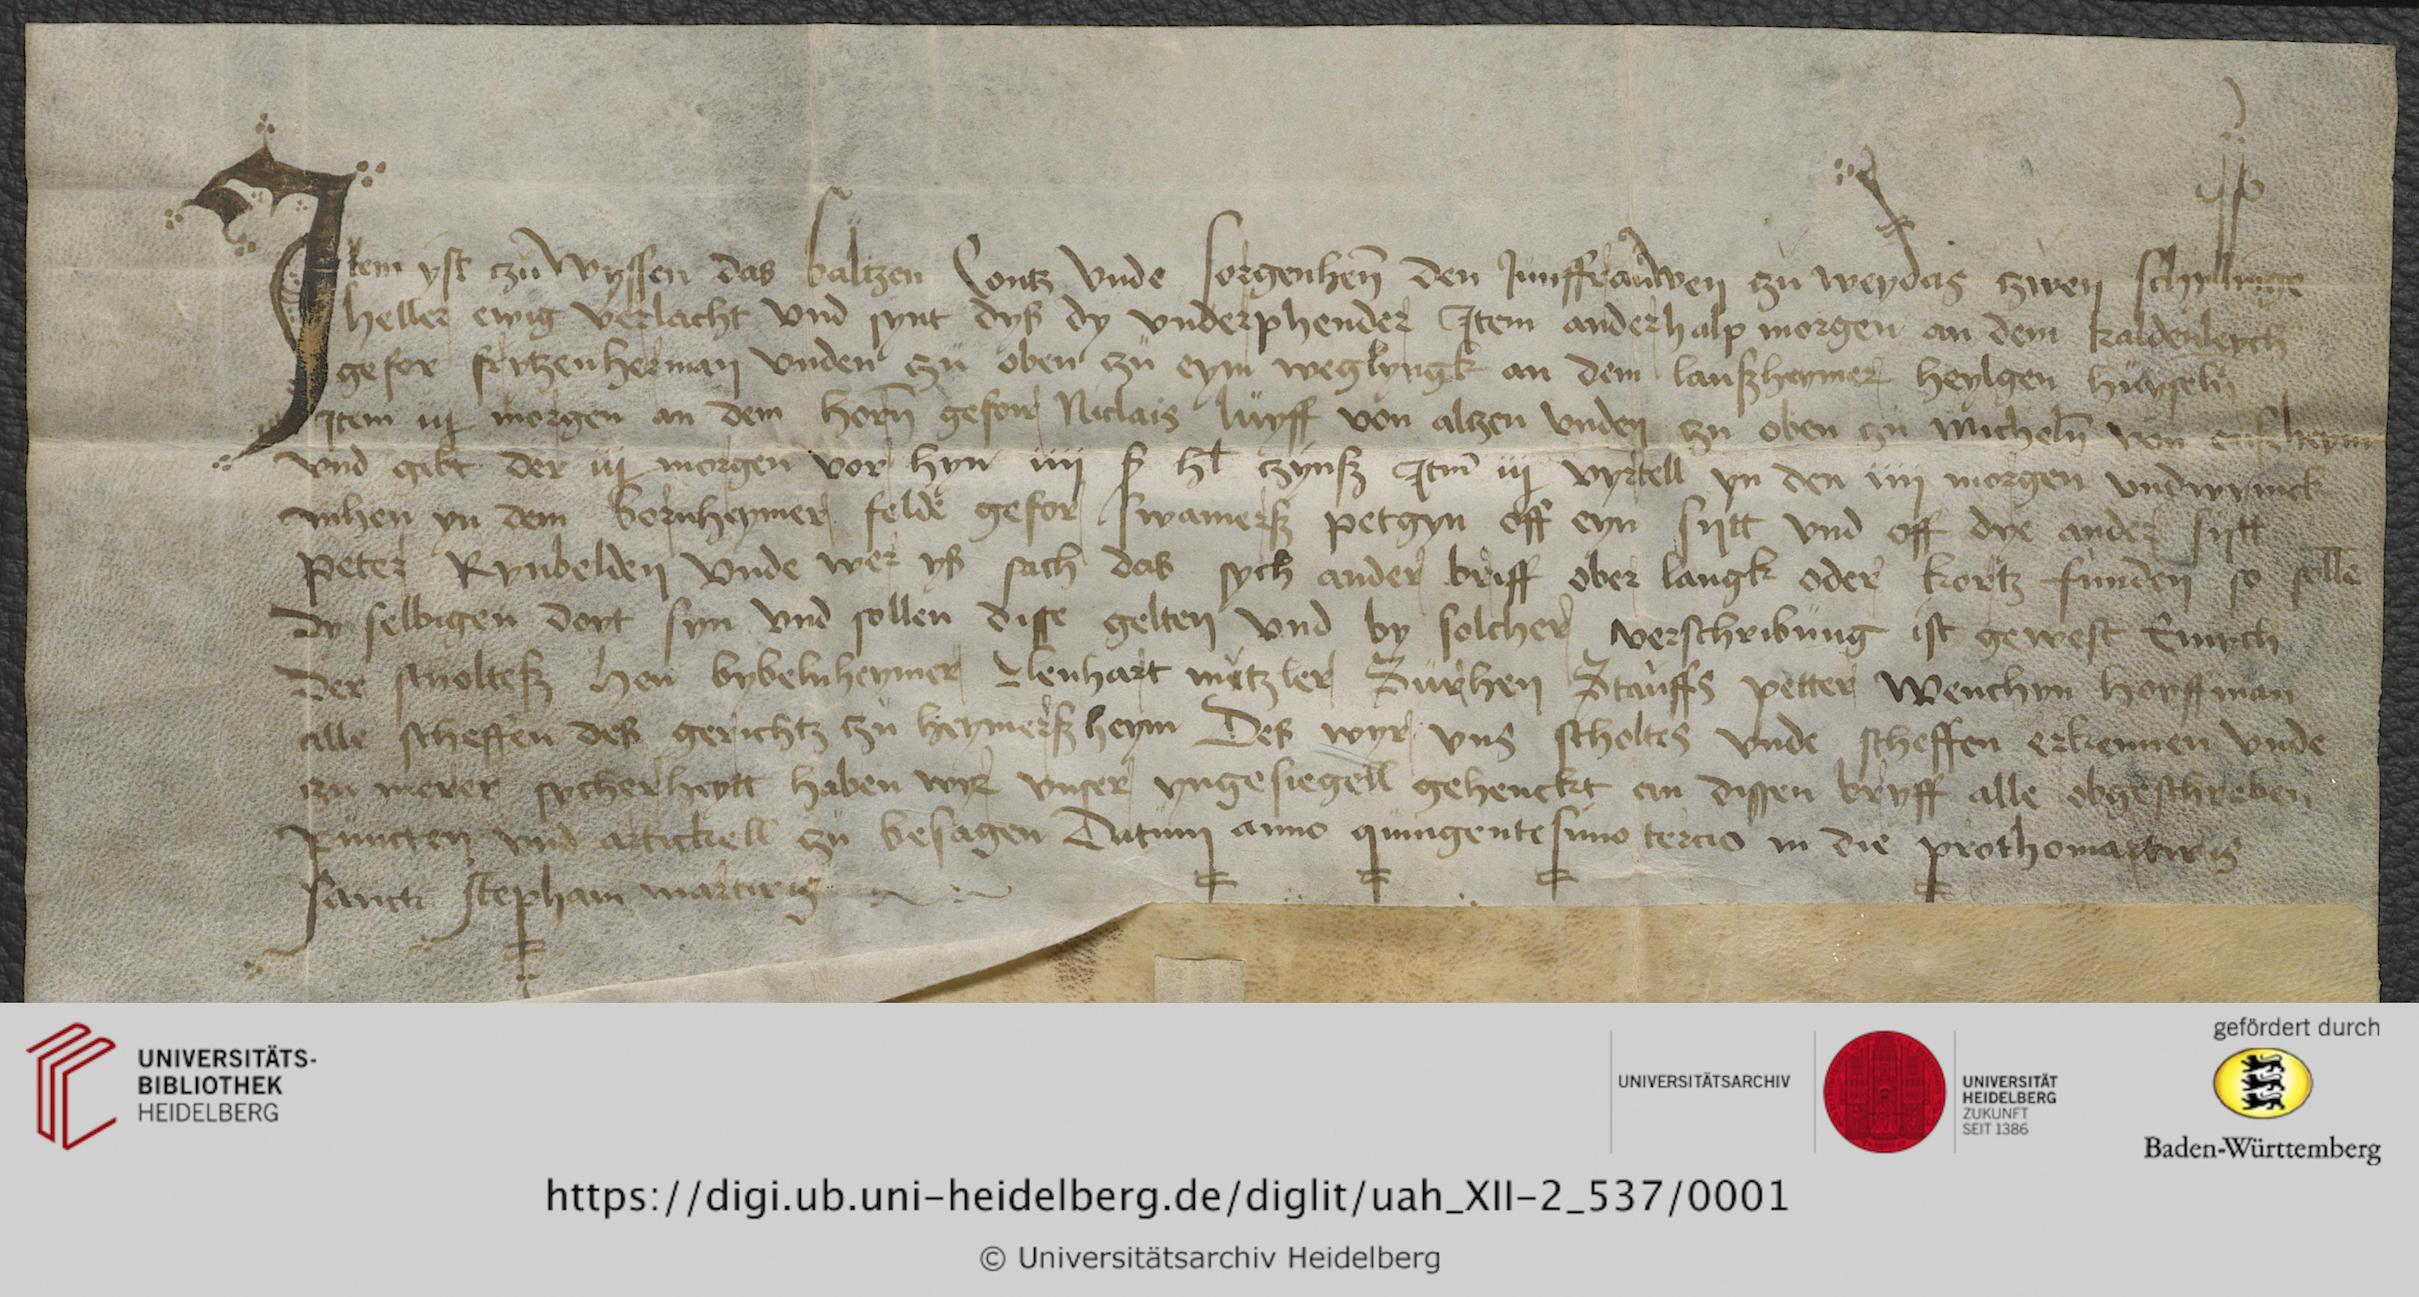 Item yst zü wyssen das baltzen Contz vnde sorgenheñ den Junffrauwen zü weydas zwen schyllinge
heller ewig verlacht vnd synt dyß dy vnderphender Item anderhalp morgen an dem kaldenleych
gefor frytzenherman vnden zü oben zü eym weglyngk an dem lanßheymer heylgen
Item iij morgen an dem horñ gefor Niclais lüyff von altzen vnden zü oben zü von
vnd gibt der iij morgen vor hyn iiij ß hl zynß Itm iij vyrtell yn den iiij morgen
yn dem bornheymer felde gefor swamerß petgyn off eyn sytt vnd off dye ander sytt
peter Rynbelden vnde wer yß sach das sych ander briff ober langk oder kortz funden so solle
dy selbigen doyt syn vnd sollen disse gelten vnd by solcher verschribüng ist gewest Emych
der scholteß hen bybelnheymer lenhart metzler petter Wenchyn hoyffman
alle scheffen deß gerichtz zü heymerßheym Deß wyr vns scholtes vnde scheffen erkennen vnde
zü merer sycherheytt haben wyr vnser yngesiegell gehenckt an dissen bryff alle obgeschreben
püncten vnd artickell zü besagen Datum anno quingentesimo tercio in die prothomartiris
sancti stephani martiris
UNIVERSITÄTS-
BIBLIOTHEK
HEIDELBERG
UNIVERSITÄTSARCHIV
UNIVERSITÄT
HEIDELBERG
ZUKUNFT
SEIT 1386
gefördert durch
Baden-Württemberg
https://digi.ub.uni-heidelberg.de/diglit/uah_XII-2_537/0001
© Universitätsarchiv Heidelberg